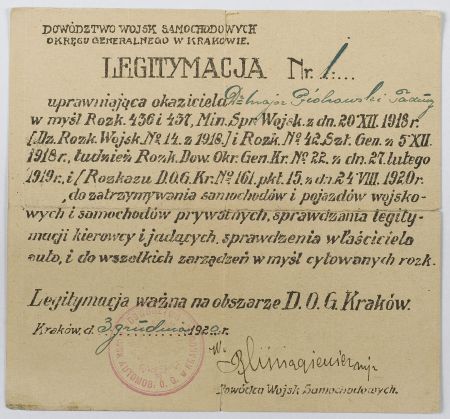 DOWÓDZTWO WOJSK SAMOCHODOWYCH
OKRĘGU GENERALNEGO W KRAKOWIE.
LEGITYMACJA Nr. 1....
uprawniająca okaziciela Piotrowski Tadeusz
w myśl Rozk. 436 i 437, Min. Spr. Wojsk. z dn. 20 XII. 1918 r.
[Dz. Rozk. Wojsk. No 14. z 1918.] i Rozk. No 42. Szt. Gen. z 5 XII
1918 r., tudzież Rozk. Dow. Okr. Gen. Kr. No 22. z dn. 27. lutego
1919 r. i [Rozkazu D.O.G. Kr. No 161, pkt. 15. z dn. 24 VIII. 1920 r.
do zatrzymywania samochodów i pojazdów wojsko-
wych i samochodów prywatnych, sprawdzania legity-
macji kierowcy i jadących, sprawdzenia właściciela
auto, i do wszelkich zarządzeń w myśl cytowanych rozk.
Legitymacja ważna na obszarze D.O.G. Kraków.
Kraków, d. 3 grudnia 1920 r.
Dowódca Wojsk Samochodowych.